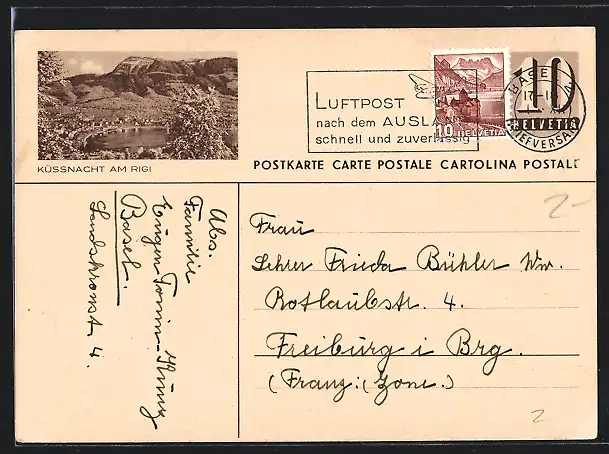 KÜSSNACHT AM RIGI
LUFTPOST
nach dem AUSLAN
schnell und zuverlässig
10 HELVETIA
BASEL
17-1
BRIEFVERSAND
10
HELVETIA
POSTKARTE CARTE POSTALE CARTOLINA POSTALE
2-
Abs.
Familie
Eugen Tonin-Kunz
Basel.
Landskronst 4.
Frau
Lehrer Frieda Bühler Ww.
Rotlaubstr. 4.
Freiburg i Brg.
(Franz: Zone.)
2